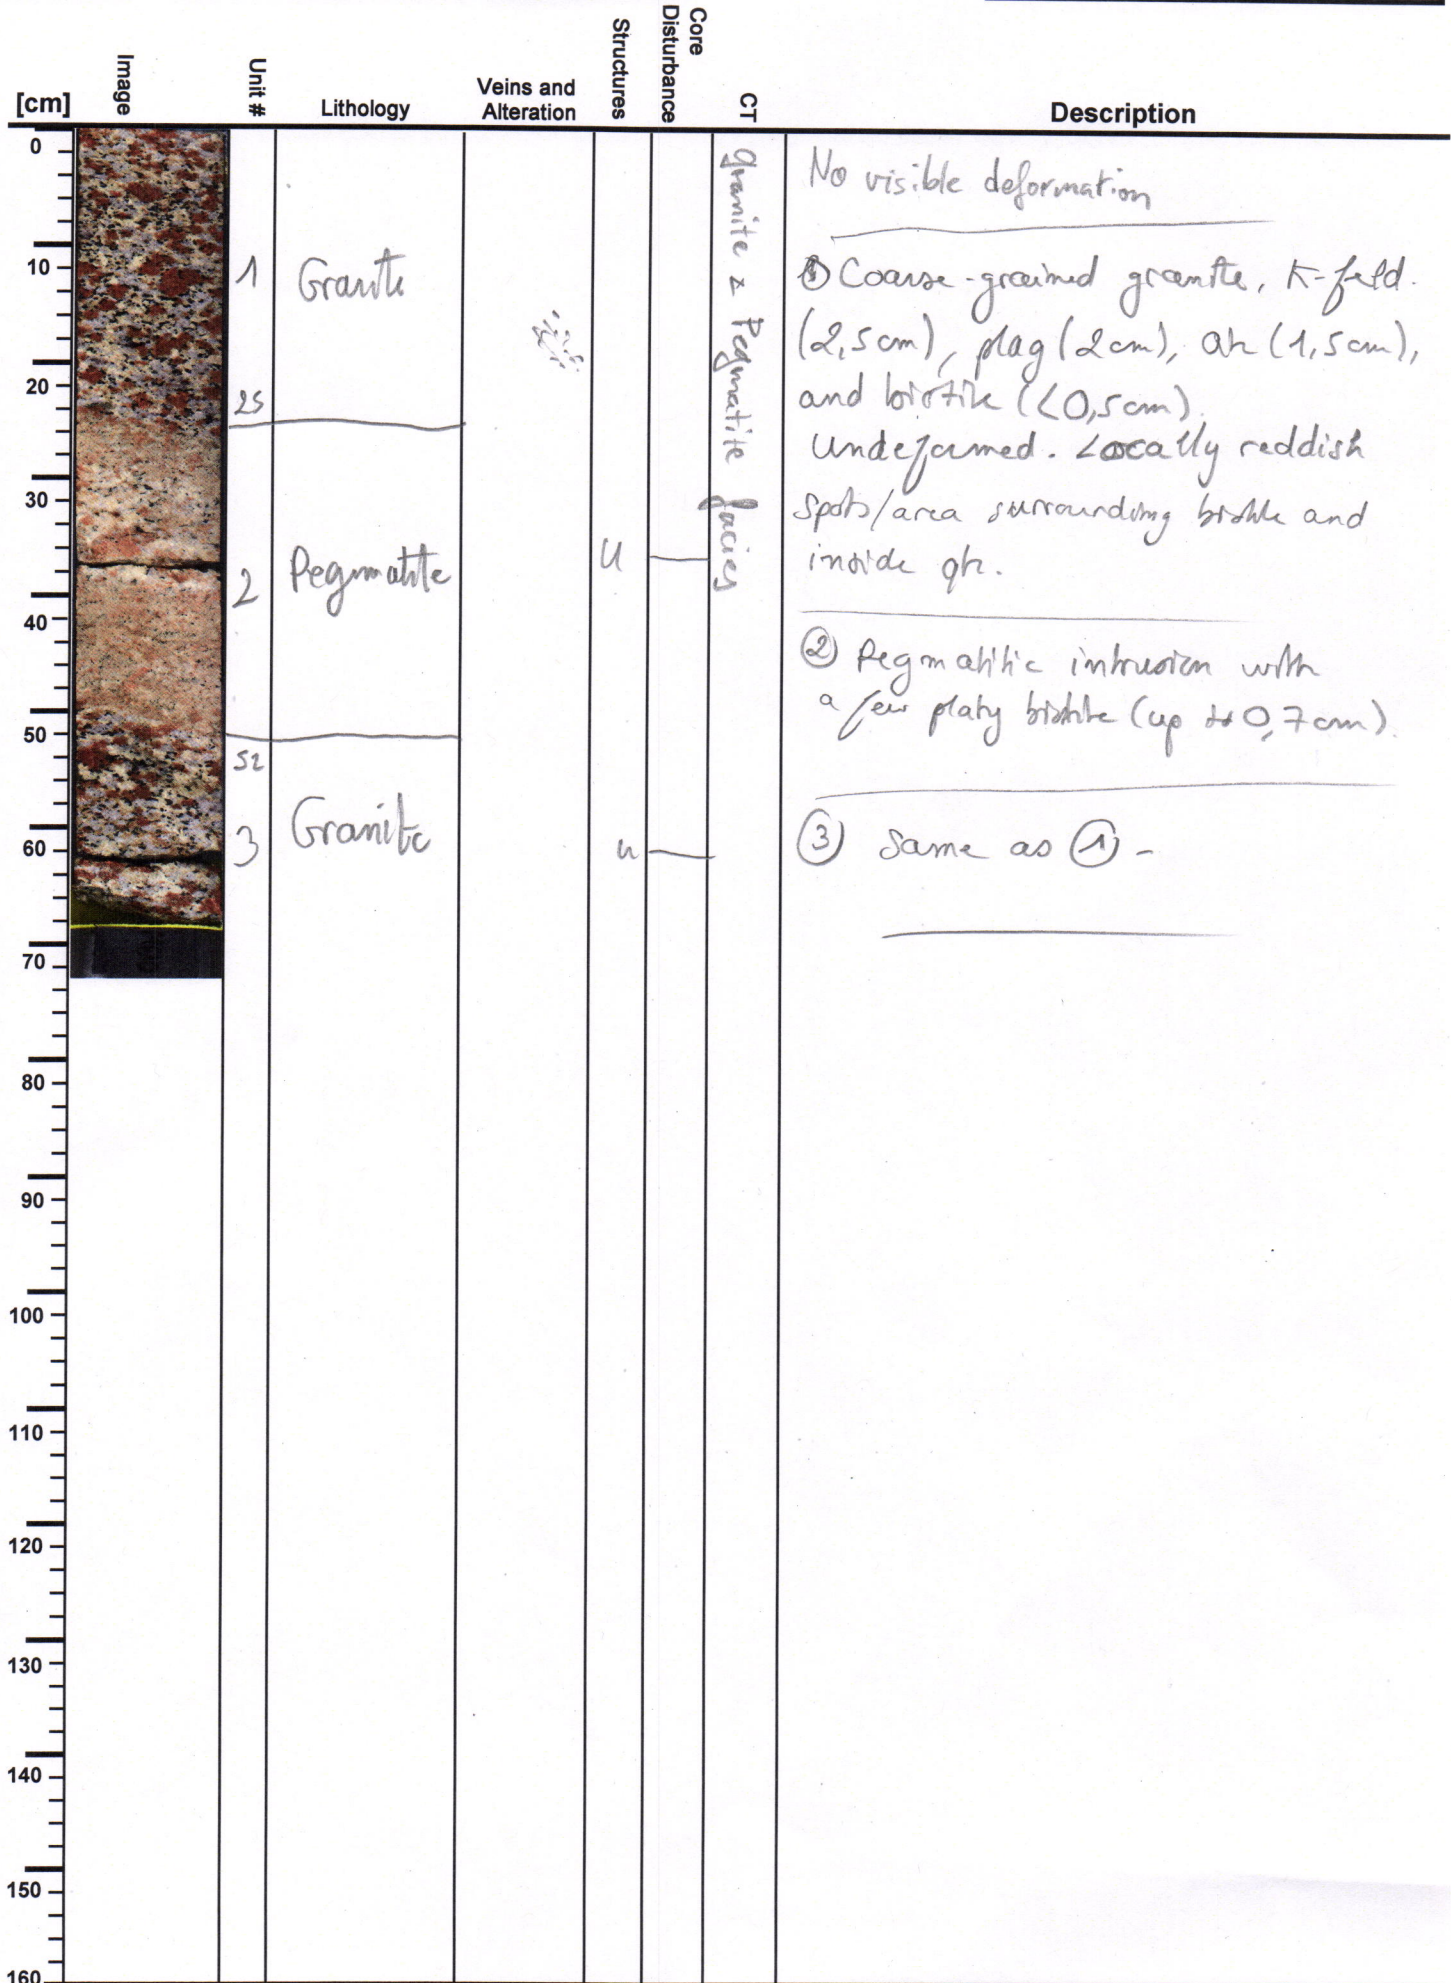 [cm]
Image
Unit #
Lithology
Veins and
Alteration
Structures
Core
Disturbance
CT
Description
0
10
20
30
40
50
60
70
80
90
100
110
120
130
140
150
160
1
Granite
25
2
Pegmatite
52
3
Granite
U
u
granite & Pegmatite facies
No visible deformation
① Coarse-grained granite, K-feld.
(2,5cm), plag (2cm), qtz (1,5cm),
and biotite (<0,5cm).
Undeformed. Locally reddish
spots/area surrounding biotite and
inside qtz.
② Pegmatitic intrusion with
a few platy biotite (up to 0,7cm).
③ Same as ① -